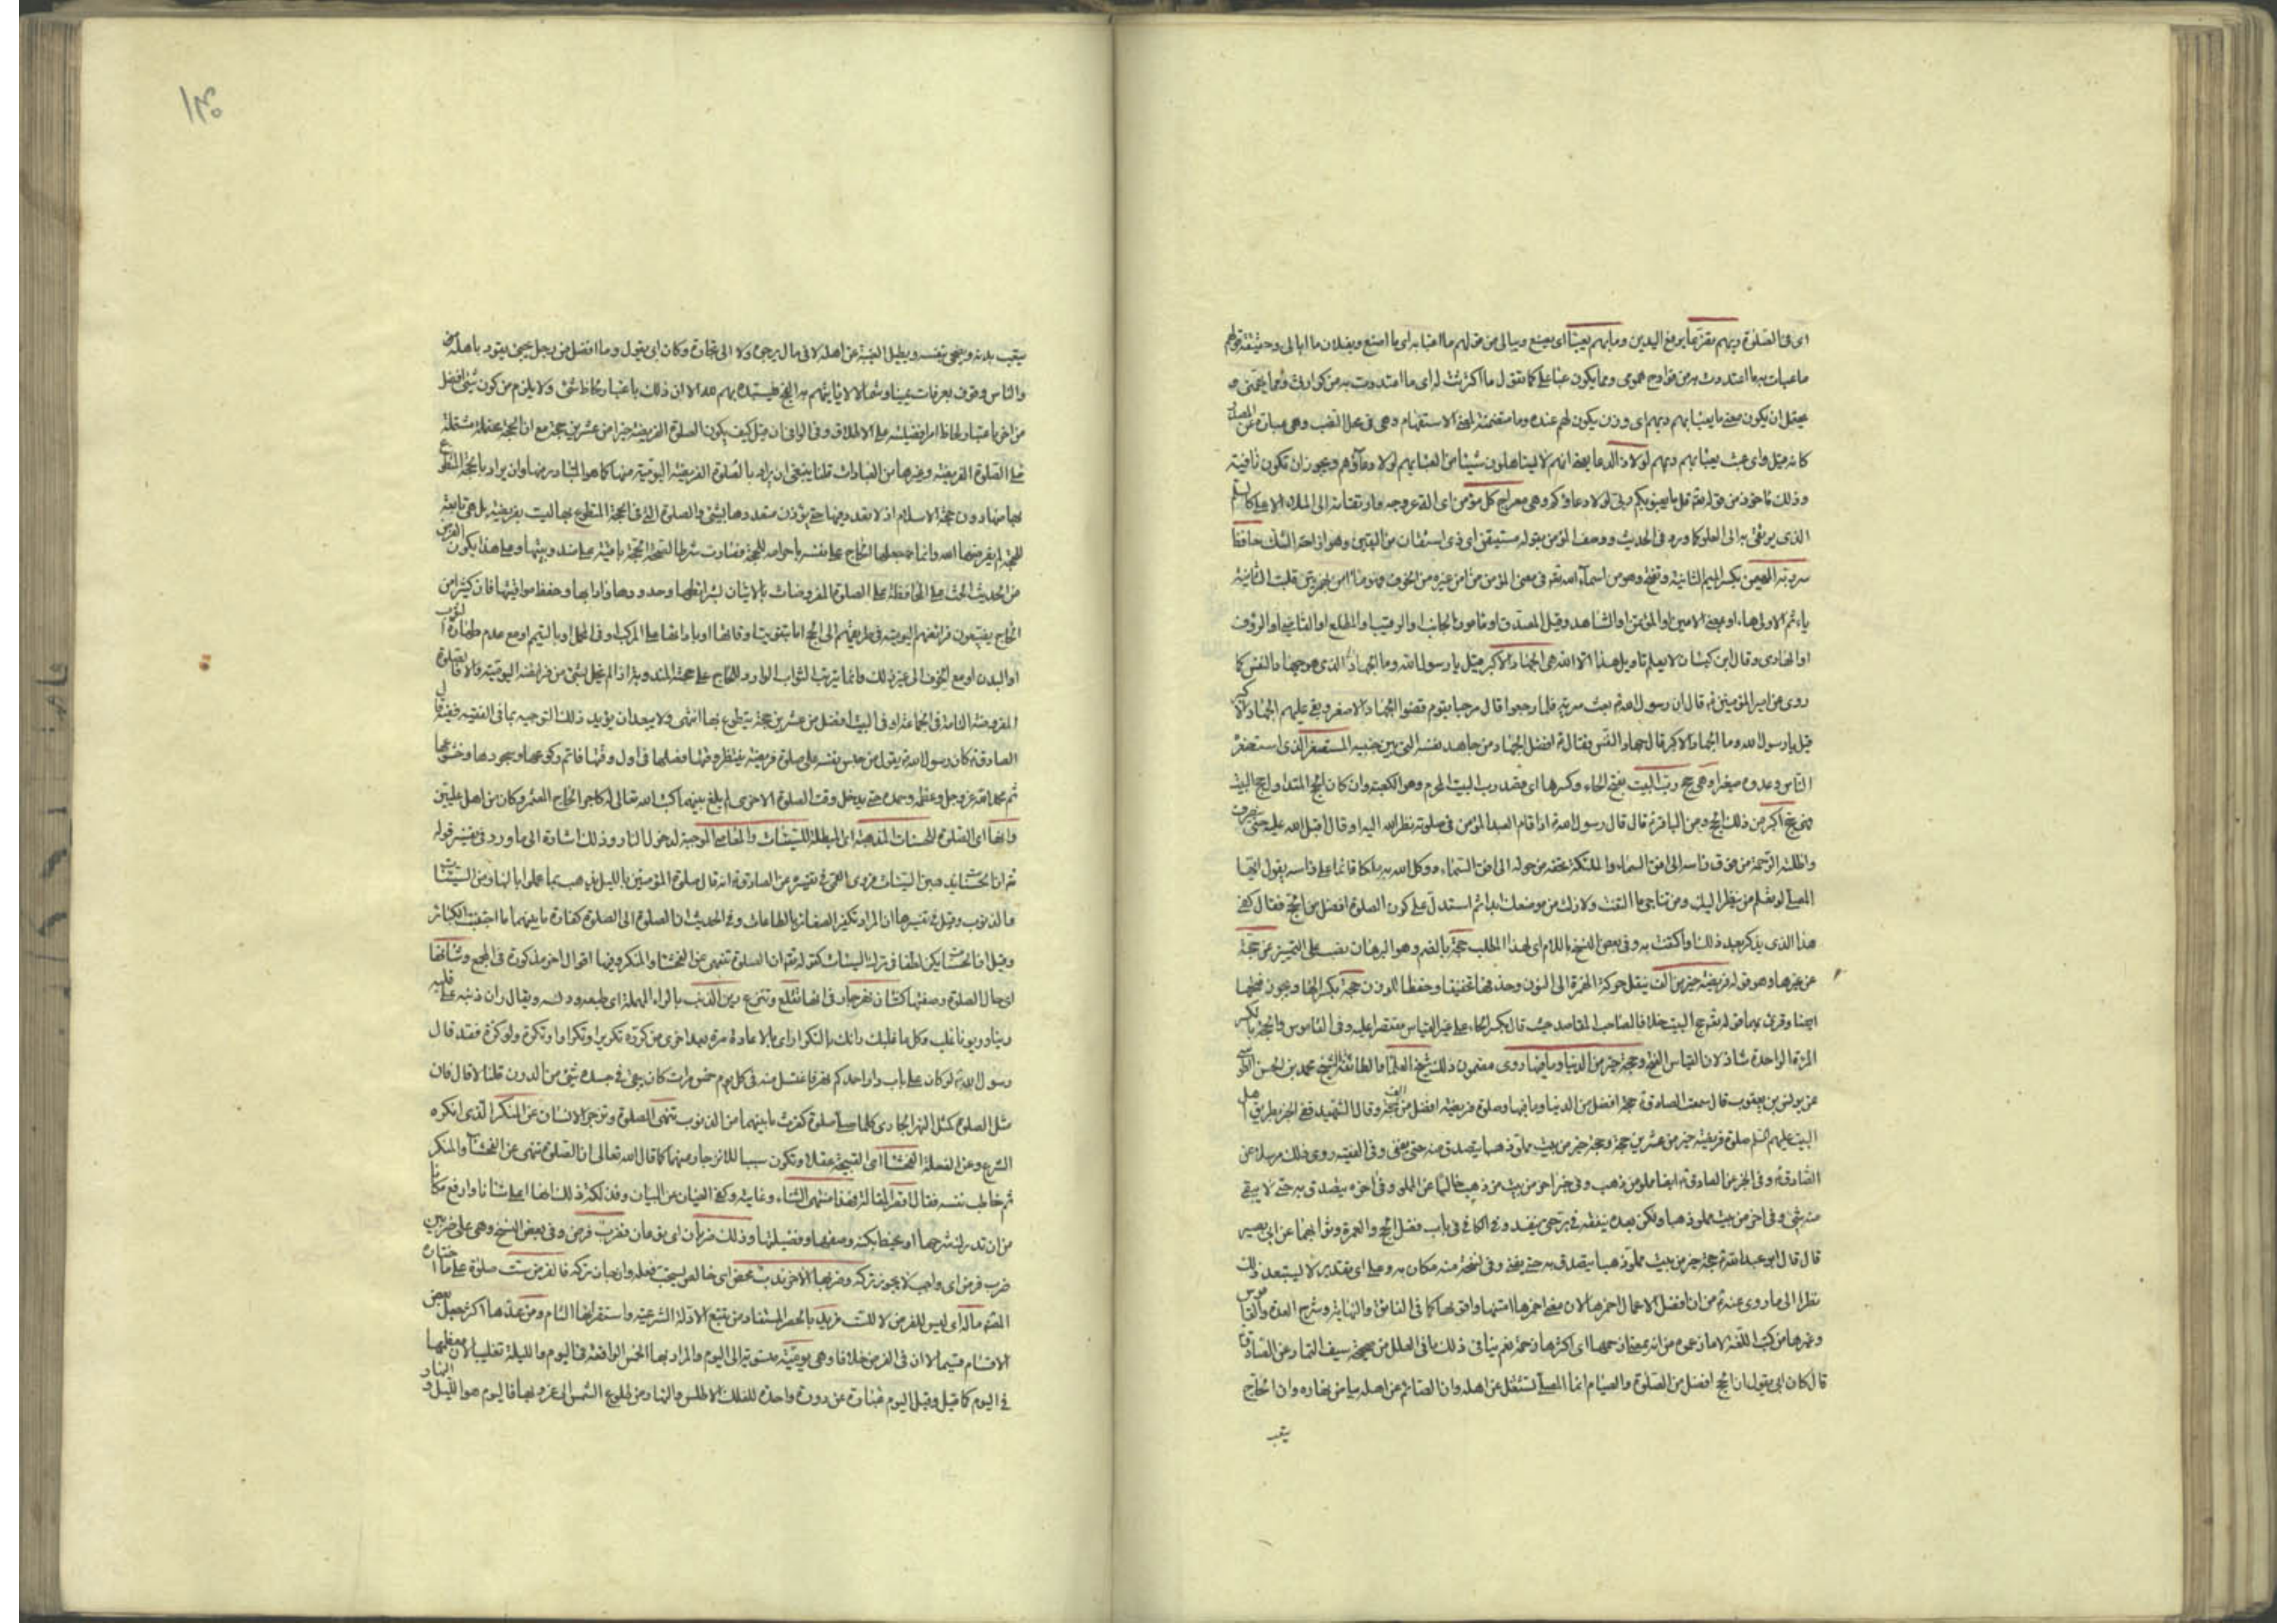 اى فى الصلوة ربهم بقرعا برفع اليدين وما بهم يعبأ اى يصنع ويبالى من قولهم ما اعبأ به اى ما اصنع وبفلان ما ابالى وحقيقته قولهم
ما عبأت به ما اعتددت به من همومى ومما يكون عبأ على كما تقول ما اكترثت له اى ما اعتددت به من كوارثى ومما يهمنى
يحتمل ان يكون معنى ما يعبأ بهم ربهم اى وزن يكون لهم عنده وما متضمنة لمعنى الاستفهام وهى فى محل النصب وهى عبارة عن المصدر
كانه قيل واى عبء يعبأ بهم ربهم لولا الدعا يعنى انهم لا يستاهلون شيئا من العبأ بهم لولا دعاؤهم ويجوز ان تكون نافية
وذلك مأخوذ من قوله تعالى قل ما يعبؤ بكم ربى لولا دعاؤكم وهى معراج كل مؤمن اى الة عروجه وارتقائه الى الملاء الاعلى كالسلم
الذى يرتقى به الى العلو كما ورد فى الحديث ووصف المؤمن بقوله مستيقن اى ذى استيقان من اليقين وهو ازاحة الشك حافظا
سر ربه المهيمن بكسر الميم الثانية وتفتح وهو من اسماء الله تعالى فى معنى المؤمن من آمن غيره من الخوف فهو مأمن بهمزتين قلبت الثانية
ياء ثم الاولى هاء او بمعنى الامين او المؤتمن او الشاهد وقيل المصدق او مأمون الجانب او الرقيب او المطلع او القاضى او الرؤف
او الهادى وقال ابن كيسان لا يعلم تاويل هذا الا الله هى الجهاد الاكبر قيل يا رسول الله وما الجهاد الذى هو جهاد النفس كما
روى عن امير المؤمنين ع قال ان رسول الله ص بعث سرية فلما رجعوا قال مرحبا بقوم قضوا الجهاد الاصغر وبقى عليهم الجهاد الاكبر
قيل يا رسول الله وما الجهاد الاكبر قال جهاد النفس وقال ع افضل الجهاد من جاهد نفسه التى بين جنبيه المستصغر الذى استصغره
الناس وعدوه صغيرا وهى حج رب البيت بفتح الحاء وكسرها اى قصد رب البيت الحرم وهو الكعبة وان كان الحج المتداول حج البيت
فهى حج اكبر من ذلك الحج وعن الباقر ع قال قال رسول الله ص اذا قام العبد المؤمن فى صلوته نظر الله اليه او قال اقبل الله عليه حتى ينصرف
واظلته الرحمة من فوق راسه الى افق السماء والملئكة تحفه من حوله الى افق السماء ووكل الله به ملكا قائما على راسه يقول ايها
المصلى لو تعلم من ينظر اليك ومن تناجى ما التفت ولا زلت من موضعك ابدا ثم استدل على كون الصلوة افضل من الحجة فقال كفى
هذا الذى يذكر بعد ذلك واكتفت به وفى بعض النسخ باللام اى لهذا المطلب حجة بالضم وهو البرهان نصب على التميز عن حجة
عن غيرها وهو قوله فريضة خير من الف بنقل حركة الهمزة الى النون وحذفها تخفيفا وحفظا للوزن حجة بكسر الحاء ويجوز فتحها
ايضا وقرئ بهما فى قوله تعالى حج البيت خلافا لصاحب المقاصد حيث قال بكسر الحاء على غير القياس مقتصرا عليه وفى القاموس والحجة بالكسر
المرة الواحدة شاذ لان القياس الفتح وحجة خير من الدنيا وما فيها روى مضمون ذلك شيخ العلماء والطائفة الشيخ محمد بن الحسن الطوسى
عن يونس بن يعقوب قال سمعت الصادق ع حجة افضل من الدنيا وما فيها وصلوة فريضة افضل من الف حجة وقال الشهيد ففى الخبر بطريق اهل
البيت عليهم السلم صلوة فريضة خير من عشرين حجة وحجة خير من بيت مملو ذهبا يتصدق منه حتى يفنى وفى الفقيه روى ذلك مرسلا عن
الصادق ع وفى الخبر عن الصادق ع ايضا مملو من ذهب وفى خبر اخر من بيت من ذهب خاليا عن الملو وفى اخره يتصدق به حتى لا يبقى
منه شئ وفى اخر من بيت مملو ذهبا ولكن بعده ينفقه فى بر حتى ينفد وفى الكافى فى باب فضل الحج والعمرة وثوابهما عن ابى بصير
قال قال ابو عبدالله ع حجة خير من بيت مملو ذهبا يتصدق به حتى يفنى وفى نسخة منه مكان به وعلى اى تقدير لا يستبعد ذلك
نظرا الى ما روى عنه ص من ان افضل الاعمال احمزها لان معنى احمزها امتنها واقويها كما فى الفائق والنهاية وشرح العدة والقاموس
وغيرها من كتب اللغة
قال كان ابى يقول ان الحج افضل من الصلوة والصيام انما المصلى يشتغل عن اهله وان الصائم عن اهله بياض نهاره وان الحاج
يتعب
١٣٠
يتعب بدنه ويضجر نفسه ويطيل الغيبة عن اهله لا فى مال يرجوه ولا الى تجارة وكان ابى يقول وما افضل من رجل يجئ يقود باهله
والناس وقوف بعرفات يمينا وشمالا ياتى بهم الحج
من اخر باعتبار لحاظ امر افضليته على الاطلاق وفى الوافى ان قيل كيف يكون الصلوة الفريضة خيرا من عشرين حجة مع ان الحجة متضمنة مشتملة
على الصلوة الفريضة وغيرها من العبادات قلنا ينبغى ان يراد بالصلوة الفريضة اليومية منها كما هو المتبادر منها وان يراد بالحجة المتطوع
بها منها دون حجة الاسلام اذ لا تعدد فيها حتى يوزن متعددها بشئ والصلوة التى فى الحجة المتطوع بها ليست بفريضة بل هى تابعة
للحجة لم يفرضها الله وانما جعلها الحاج على نفسه باحرامه للحجة فصارت شرطا لصحة حجة باقية على ندبيتها وعلى هذا يكون الغرض
من الحديث الحث على المحافظة على الصلوة المفروضات بالاتيان بشرائطها وحدودها وادابها وحفظ مواقيتها فان كثيرا من
الحاج يضيعون فرائضهم اليومية فى طريقهم الى الحج اما بتفويت اوقاتها او بادائها على المركب او فى المحمل او بالتيمم او مع عدم طهارة الثوب
او البدن او مع الخوف الى غير ذلك وانما يترتب الثواب الوارد للحاج على حجته المندوبة اذا لم يخل بشئ من فرائضه اليومية والا فالصلوة
المفروضة التامة فى الجماعة او فى البيت افضل من عشرين حجة يتطوع بها انتهى ولا يبعد ان يؤيد ذلك التوجيه بما فى الفقيه
الصادق ع كان رسول الله ص يقول من حبس نفسه على صلوة فريضة ينتظر وقتها فصلها فى اول وقتها فاتم ركوعها وسجودها وخشوعها
ثم مجد الله عز وجل وعظمه وحمده حتى يدخل وقت الصلوة الاخرى لم يلغ بينهما كتب الله تعالى له كاجر الحاج المعتمر وكان من اهل عليين
وانها اى الصلوة للحسنات المذهبة اى المبطلة للسيئات والمعاصى الموجبة لدخول النار وذلك اشارة الى ما ورد فى تفسير قوله
تعالى ان الحسنات يذهبن السيئات فروى القمى فى تفسيره عن الصادق ع انه قال صلوة المؤمنين بالليل يذهب بما عملوا بالنهار من السيئات
والذنوب وقيل فى تفسيرها ان المراد تكفير الصغائر بالطاعات وفى الحديث ان الصلوة الى الصلوة كفارة ما بينهما ما اجتنب الكبائر
وقيل ان الحسنات يكن لطفا فى ترك السيئات كقوله تعالى ان الصلوة تنهى عن الفحشاء والمنكر وفيها اقوال اخر مذكورة فى المجمع وشانها
اى حال الصلوة وصفتها كشان نهر جار فى انها تقلع وتنزع رين الذنب بالراء المهملة اى طبعه ودنسه ويقال ران ذنبه على قلبه
رينا وريونا غلب وكل ما غلبك رانك بالتكرار اى بالاعادة مرة بعد اخرى من كرره تكريرا وتكرارا وتكرة ولو كرة فقد قال
رسول الله ص لو كان على باب دار احدكم نهر فاغتسل منه فى كل يوم خمس مرات كان يبقى فى جسده شئ من الدرن قلنا لا قال فان
مثل الصلوة كمثل النهر الجارى كلما صلى صلوة كفرت ما بينهما من الذنوب تنهى الصلوة وتزجر الانسان عن المنكر الذى انكره
الشرع وعن الفعلة الفحشاء اى القبيحة عقلا وتكون سببا للانزجار منهما كما قال الله تعالى ان الصلوة تنهى عن الفحشاء والمنكر
ثم خاطب نفسه فقال اقصر المقالة فهذا منتهى الثناء وغايته وكفى العيان عن البيان وفذلكة ذلك انها اعلى شانا وارفع مكانا
من ان تدرك شرحها او يحيط بكنه وصفها وفضيلتها وذلك ضربان اى نوعان فضرب فرض وفى بعض النسخ وهى على ضربين
ضرب فرض اى واجب لا يجوز تركه وضربها الاخر ندب محض اى خالص يستحب فعله وان جاز تركه فالفرض ست صلوة على ما اختاره
المصنف ماله اى ليس للفرض لا للست مزيد بالحصر المستفاد من تتبع الادلة الشرعية واستقرائها التام ومن عدها اكثر يجعل بعض
الاقسام قسيما لا ان فى الفرض خلافا وهى يومية منسوبة الى اليوم والمراد بها الخمس الواقعة فى اليوم والليلة تغليبا لان معظمها
فى اليوم كما قيل وقيل اليوم عبارة عن دورة واحدة للفلك الاطلس والنهار من طلوع الشمس الى غروبها فاليوم هو الليل والنهار